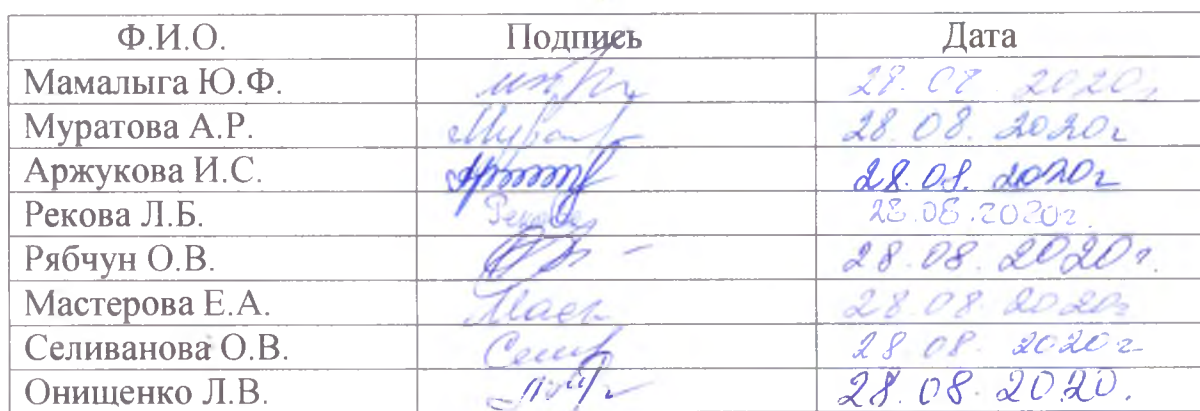 Ф.И.О. Подпись Дата
Мамалыга Ю.Ф. 28.08.2020г
Муратова А.Р. 28.08.2020г
Аржукова И.С. 28.08.2020г
Рекова Л.Б. 28.08.2020г.
Рябчун О.В. 28.08.2020г.
Мастерова Е.А. 28.08.2020г
Селиванова О.В. 28.08.2020г
Онищенко Л.В. 28.08.2020.